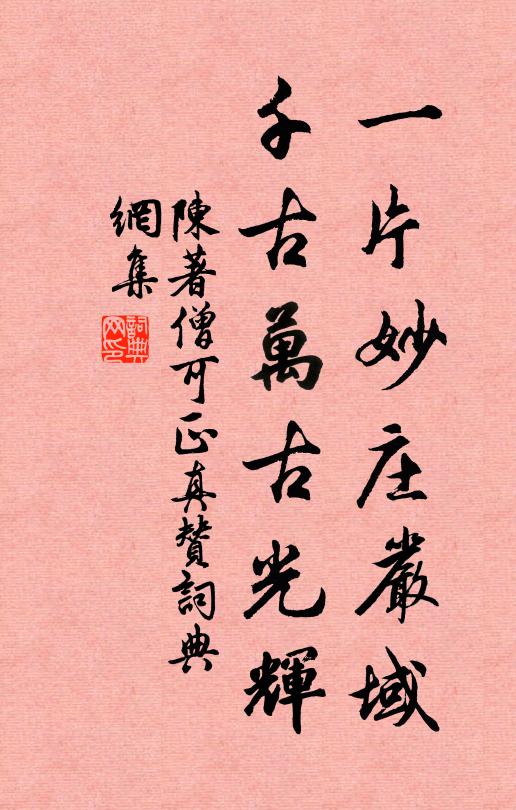 一片妙庄嚴域
千古萬古光輝
陳著僧可正真贊詞典
網集
詞典
网印